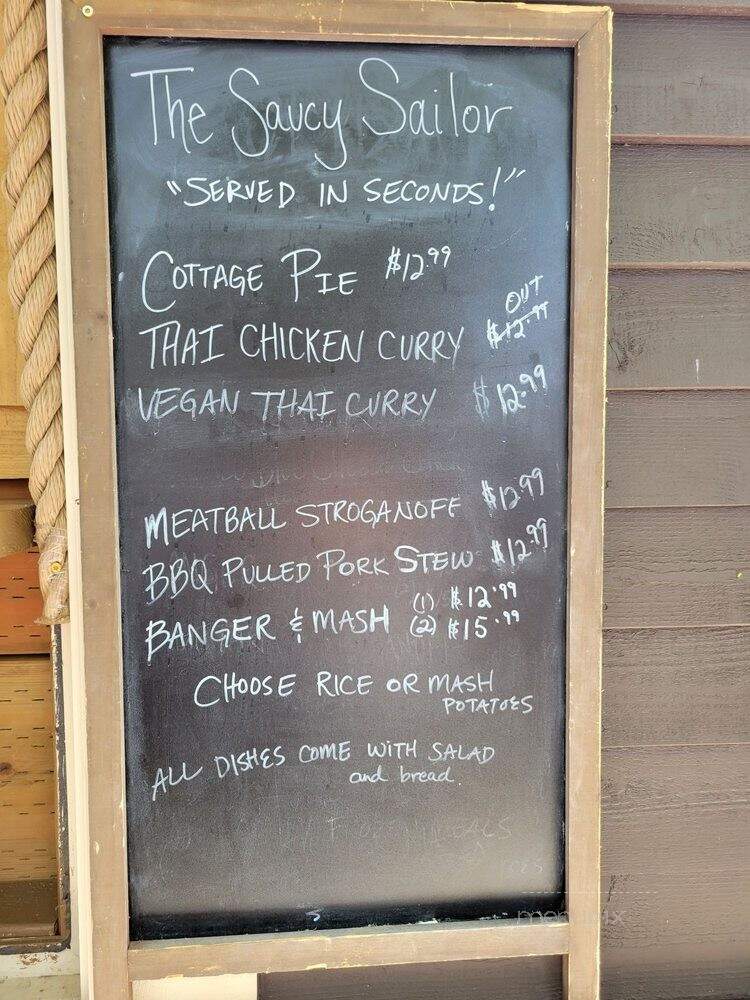 The Saucy Sailor
"SERVED IN SECONDS!"
COTTAGE PIE $12.99
OUT
THAI CHICKEN CURRY $12.99
VEGAN THAI CURRY $12.99
MEATBALL STROGANOFF $12.99
BBQ PULLED PORK STEW $12.99
BANGER & MASH (1) $12.99
(2) $15.99
CHOOSE RICE OR MASH
POTATOES
ALL DISHES COME WITH SALAD
and bread.